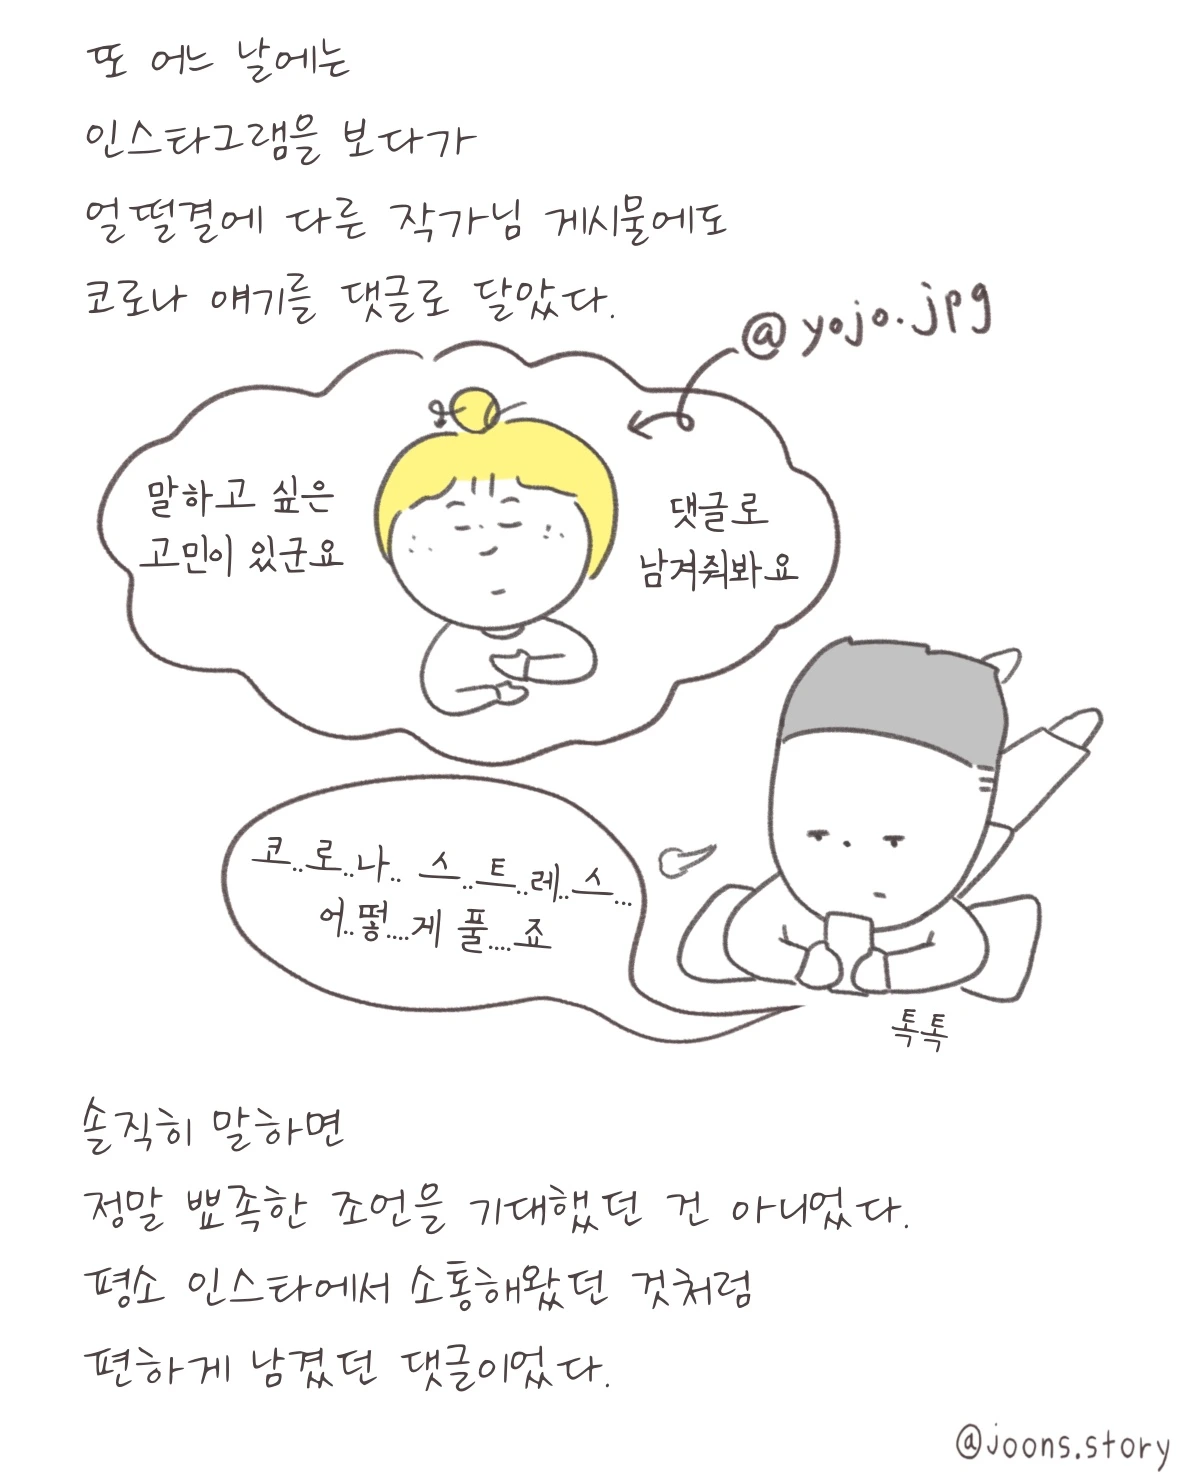 또 어느 날에는
인스타그램을 보다가
얼떨결에 다른 작가님 게시물에도
코로나 얘기를 댓글로 달았다.
@yojo.jpg
말하고 싶은
고민이 있군요
댓글로
남겨줘봐요
코..로..나.. 스..트..레..스...
어..떻....게 풀....죠
톡톡
솔직히 말하면
정말 뾰족한 조언을 기대했던 건 아니었다.
평소 인스타에서 소통해왔던 것처럼
편하게 남겼던 댓글이었다.
@joons.story